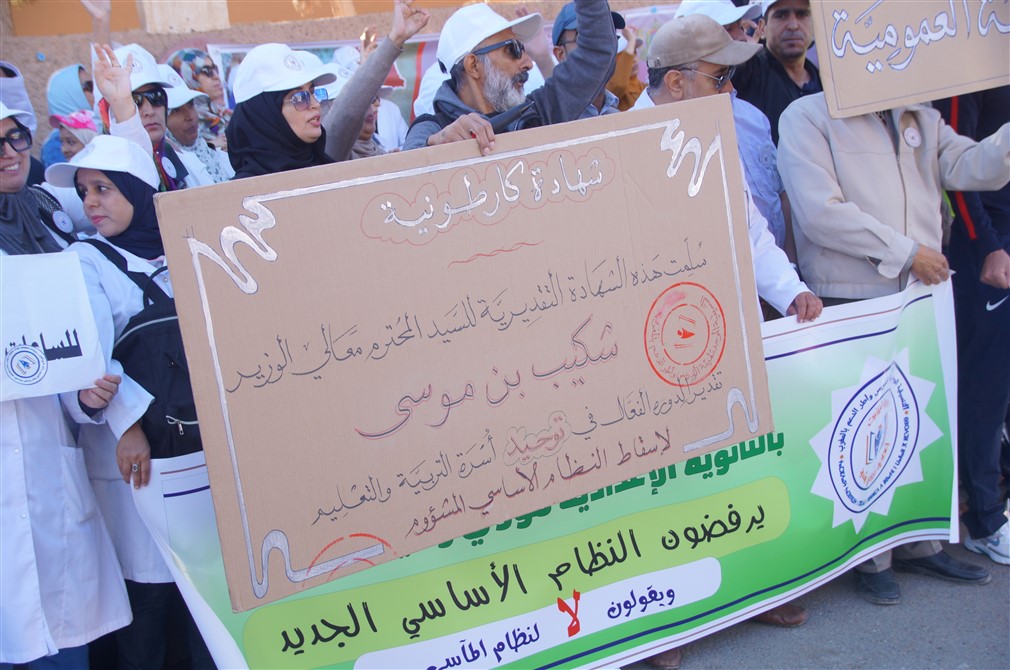 شهادة كارطونية
سُلِّمت هذه الشهادة التقديريّة للسيد المحترم معالي الوزير
شكيب بن موسى
تقدير الدوره الفعال في توحيد أسرة التربية والتعليم
لاسقاط النظام الأساسي المشؤوم
العموميّة
بالثانوية الإعدادية
يرفضون النظام الأساسي الجديد
ويقولون لا لنظام المآسي